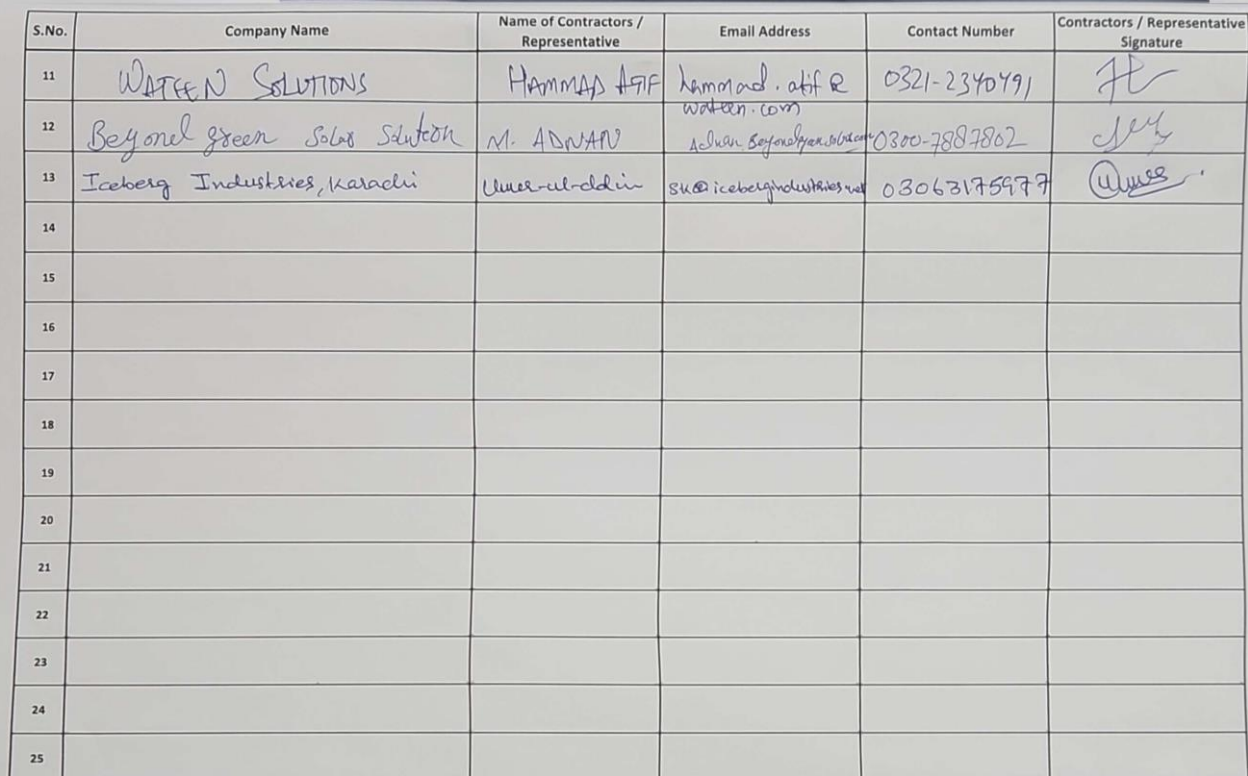 S.No. Company Name Name of Contractors / Representative Email Address Contact Number Contractors / Representative Signature
11 WATEEN SOLUTIONS HAMMAD ATIF hammad.atif@ wateen.com 0321-2340491
12 Beyond green Solar Solution M. ADNAN 0300-7887802
13 Iceberg Industries, Karachi Umer-ul-ddin sk@icebergindustries.net 03063175977 Umer
14
15
16
17
18
19
20
21
22
23
24
25